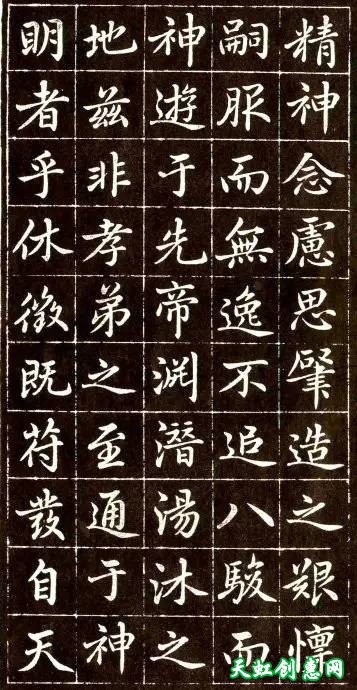 精神念慮思肈造之艱懍
嗣服而無逸不追八駿而
神遊于先帝渊潛湯沐之
地兹非孝弟之至通于神
明者乎休徵既苻發自天
天虹创意网